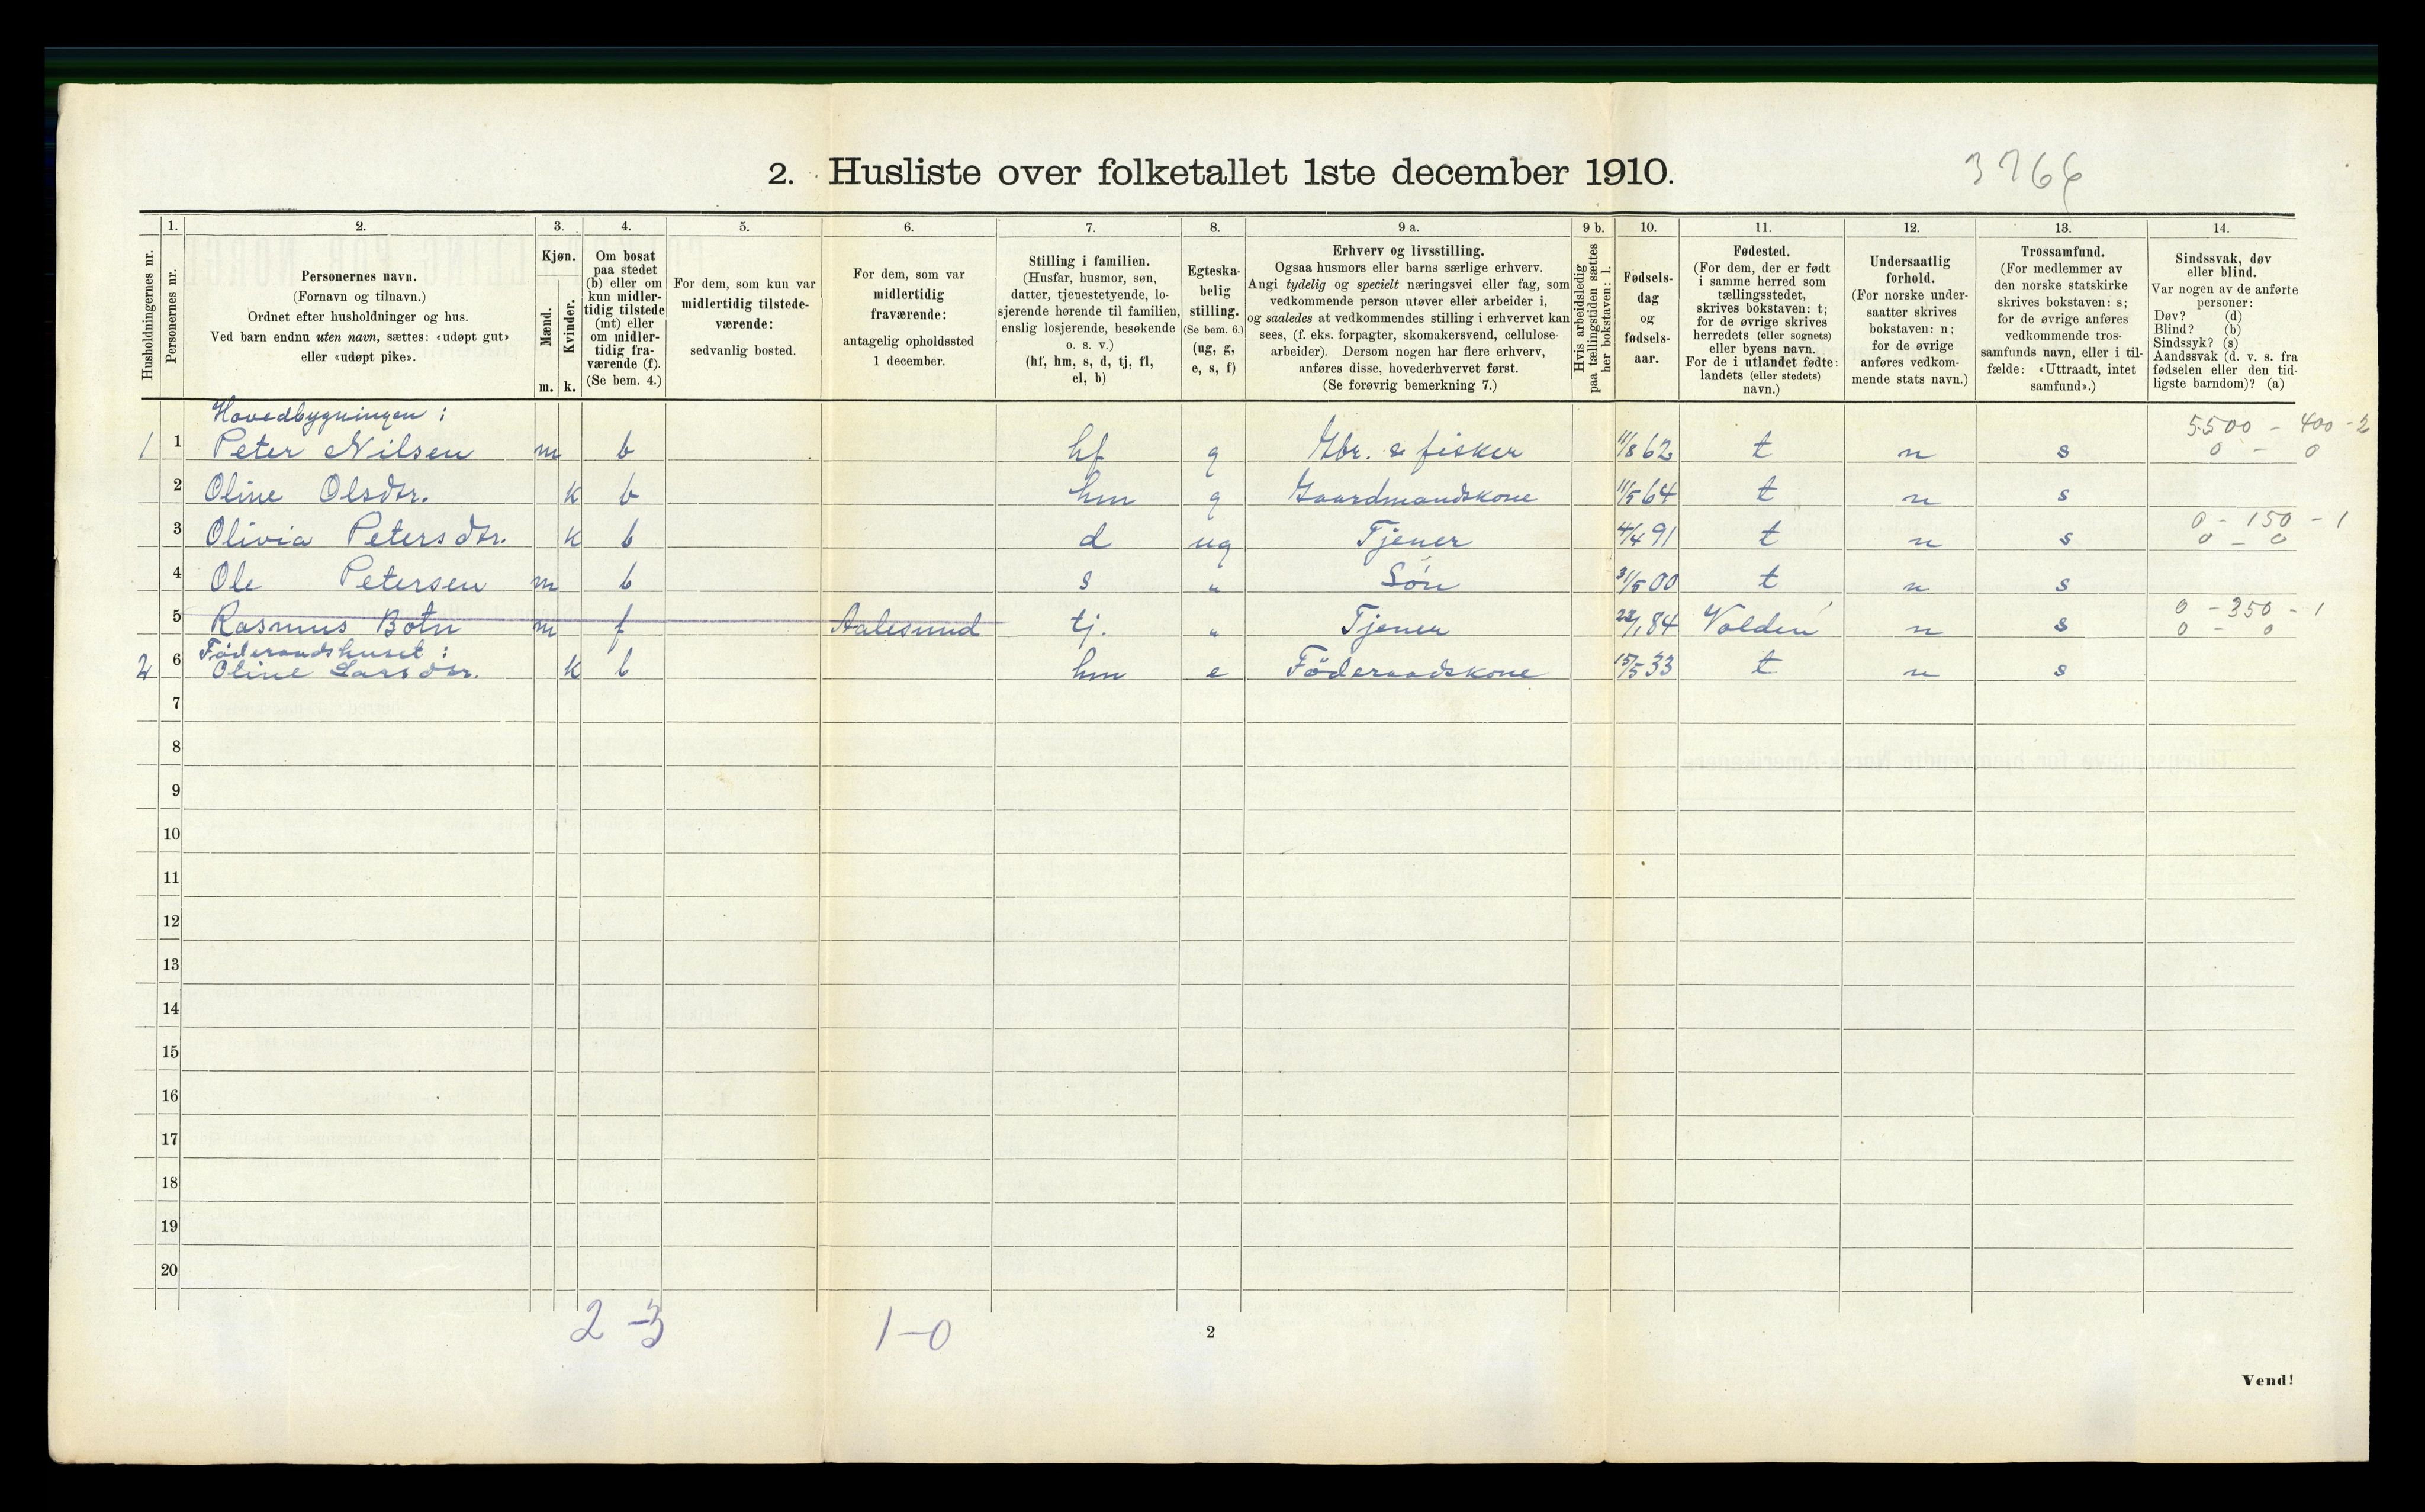 2. Husliste over folketallet 1ste december 1910.
3766
Husholdningernes nr.
1.
Personernes nr.
2.
Personernes navn.
(Fornavn og tilnavn.)
Ordnet efter husholdninger og hus.
Ved barn endnu uten navn, sættes: «udøpt gut»
eller «udøpt pike».
3.
Kjøn.
Mænd.
m.
Kvinder.
k.
4.
Om bosat
paa stedet
(b) eller om
kun midler-
tidig tilstede
(mt) eller
om midler-
tidig fra-
værende (f).
(Se bem. 4.)
5.
For dem, som kun var
midlertidig tilstede-
værende:
sedvanlig bosted.
6.
For dem, som var
midlertidig
fraværende:
antagelig opholdssted
1 december.
7.
Stilling i familien.
(Husfar, husmor, søn,
datter, tjenestetyende, lo-
sjerende hørende til familien,
enslig losjerende, besøkende
o. s. v.)
(hf, hm, s, d, tj, fl,
el, b)
8.
Egteska-
belig
stilling.
(Se bem. 6.)
(ug, g,
e, s, f)
9 a.
Erhverv og livsstilling.
Ogsaa husmors eller barns særlige erhverv.
Angi tydelig og specielt næringsvei eller fag, som
vedkommende person utøver eller arbeider i,
og saaledes at vedkommendes stilling i erhvervet kan
sees, (f. eks. forpagter, skomakersvend, cellulose-
arbeider). Dersom nogen har flere erhverv,
anføres disse, hovederhvervet først.
(Se forøvrig bemerkning 7.)
9 b.
Hvis arbeidsledig
paa tællingstiden sættes
her bokstaven: l.
10.
Fødsels-
dag
og
fødsels-
aar.
11.
Fødested.
(For dem, der er født
i samme herred som
tællingsstedet,
skrives bokstaven: t;
for de øvrige skrives
herredets (eller sognets)
eller byens navn.
For de i utlandet fødte:
landets (eller stedets)
navn.)
12.
Undersaatlig
forhold.
(For norske under-
saatter skrives
bokstaven: n;
for de øvrige
anføres vedkom-
mende stats navn.)
13.
Trossamfund.
(For medlemmer av
den norske statskirke
skrives bokstaven: s;
for de øvrige anføres
vedkommende tros-
samfunds navn, eller i til-
fælde: «Uttraadt, intet
samfund».)
14.
Sindssvak, døv
eller blind.
Var nogen av de anførte
personer:
Døv? (d)
Blind? (b)
Sindssyk? (s)
Aandssvak (d. v. s. fra
fødselen eller den tid-
ligste barndom)? (a)
Hovedbygningen :
5500 - 400 - 2
1 1 Peter Nilsen m b hf g Gbr. & fisker 11/8 62 t n s 0 - 0
2 Oline Olsdtr. k b hm g Gaardmandskone 11/5 64 t n s
0 - 150 - 1
3 Olivia Petersdtr. k b d ug Tjener 4/4 91 t n s 0 - 0
4 Ole Petersen m b s " Søn 31/5 00 t n s
0 - 350 - 1
5 Rasmus Botn m f Aalesund tj. " Tjener 22/1 84 Volden n s 0 - 0
Föderaadshuset :
2 6 Oline Larsdtr. k b hm e Föderaadskone 15/5 33 t n s
7
8
9
10
11
12
13
14
15
16
17
18
19
20
2 - 3 1 - 0
2
Vend!